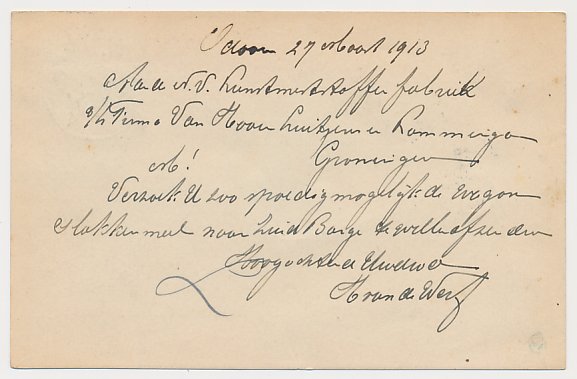 Odoorn 27 Maart 1913
Aan de N.V. Kunstmeststoffen fabriek
v/h Firma Van Hoorn Luitjens en Kamminga
Groningen
M!
Verzoek U zoo spoedig mogelijk de wagon
slakkenmeel naar Zuid Barge te willen afzenden
Hoogachtend Uw dw
H van de Werf